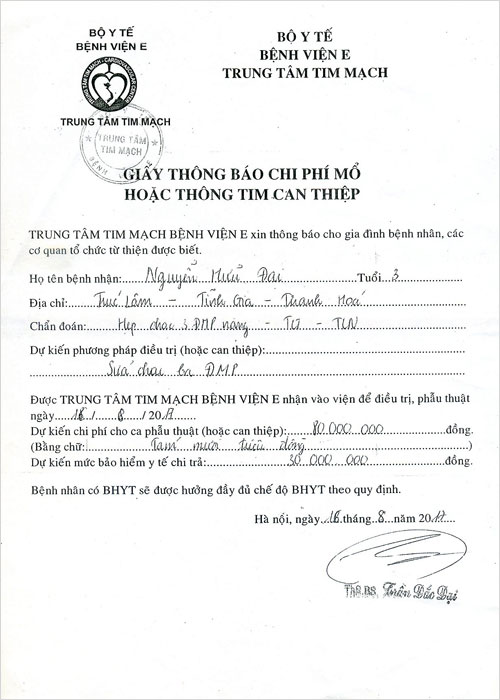 BỘ Y TẾ
BỆNH VIỆN E
TRUNG TÂM TIM MẠCH - CARDIOVASCULAR CENTER
TRUNG TÂM TIM MẠCH
BỘ Y TẾ
BỆNH VIỆN E
TRUNG TÂM TIM MẠCH
TRUNG TÂM
TIM MẠCH
GIẤY THÔNG BÁO CHI PHÍ MỔ
HOẶC THÔNG TIM CAN THIỆP
TRUNG TÂM TIM MẠCH BỆNH VIỆN E xin thông báo cho gia đình bệnh nhân, các
cơ quan tổ chức từ thiện được biết.
Họ tên bệnh nhân: Nguyễn Hữu Đại Tuổi 3
Địa chỉ: Trúc Lâm - Tĩnh Gia - Thanh Hoá
Chẩn đoán: Hẹp chạc 3 ĐMP nặng - - TLN
Dự kiến phương pháp điều trị (hoặc can thiệp):
Sửa chạc ba ĐMP
Được TRUNG TÂM TIM MẠCH BỆNH VIỆN E nhận vào viện để điều trị, phẫu thuật
ngày 16 / 8 / 2017
Dự kiến chi phí cho ca phẫu thuật (hoặc can thiệp): 80 000 000 đồng.
(Bằng chữ: Tám mươi triệu đồng )
Dự kiến mức bảo hiểm y tế chi trả: 30 000 000 đồng.
Bệnh nhân có BHYT sẽ được hưởng đầy đủ chế độ BHYT theo quy định.
Hà nội, ngày 16 tháng 8 năm 2017
ThS.BS Trần Đắc Đại